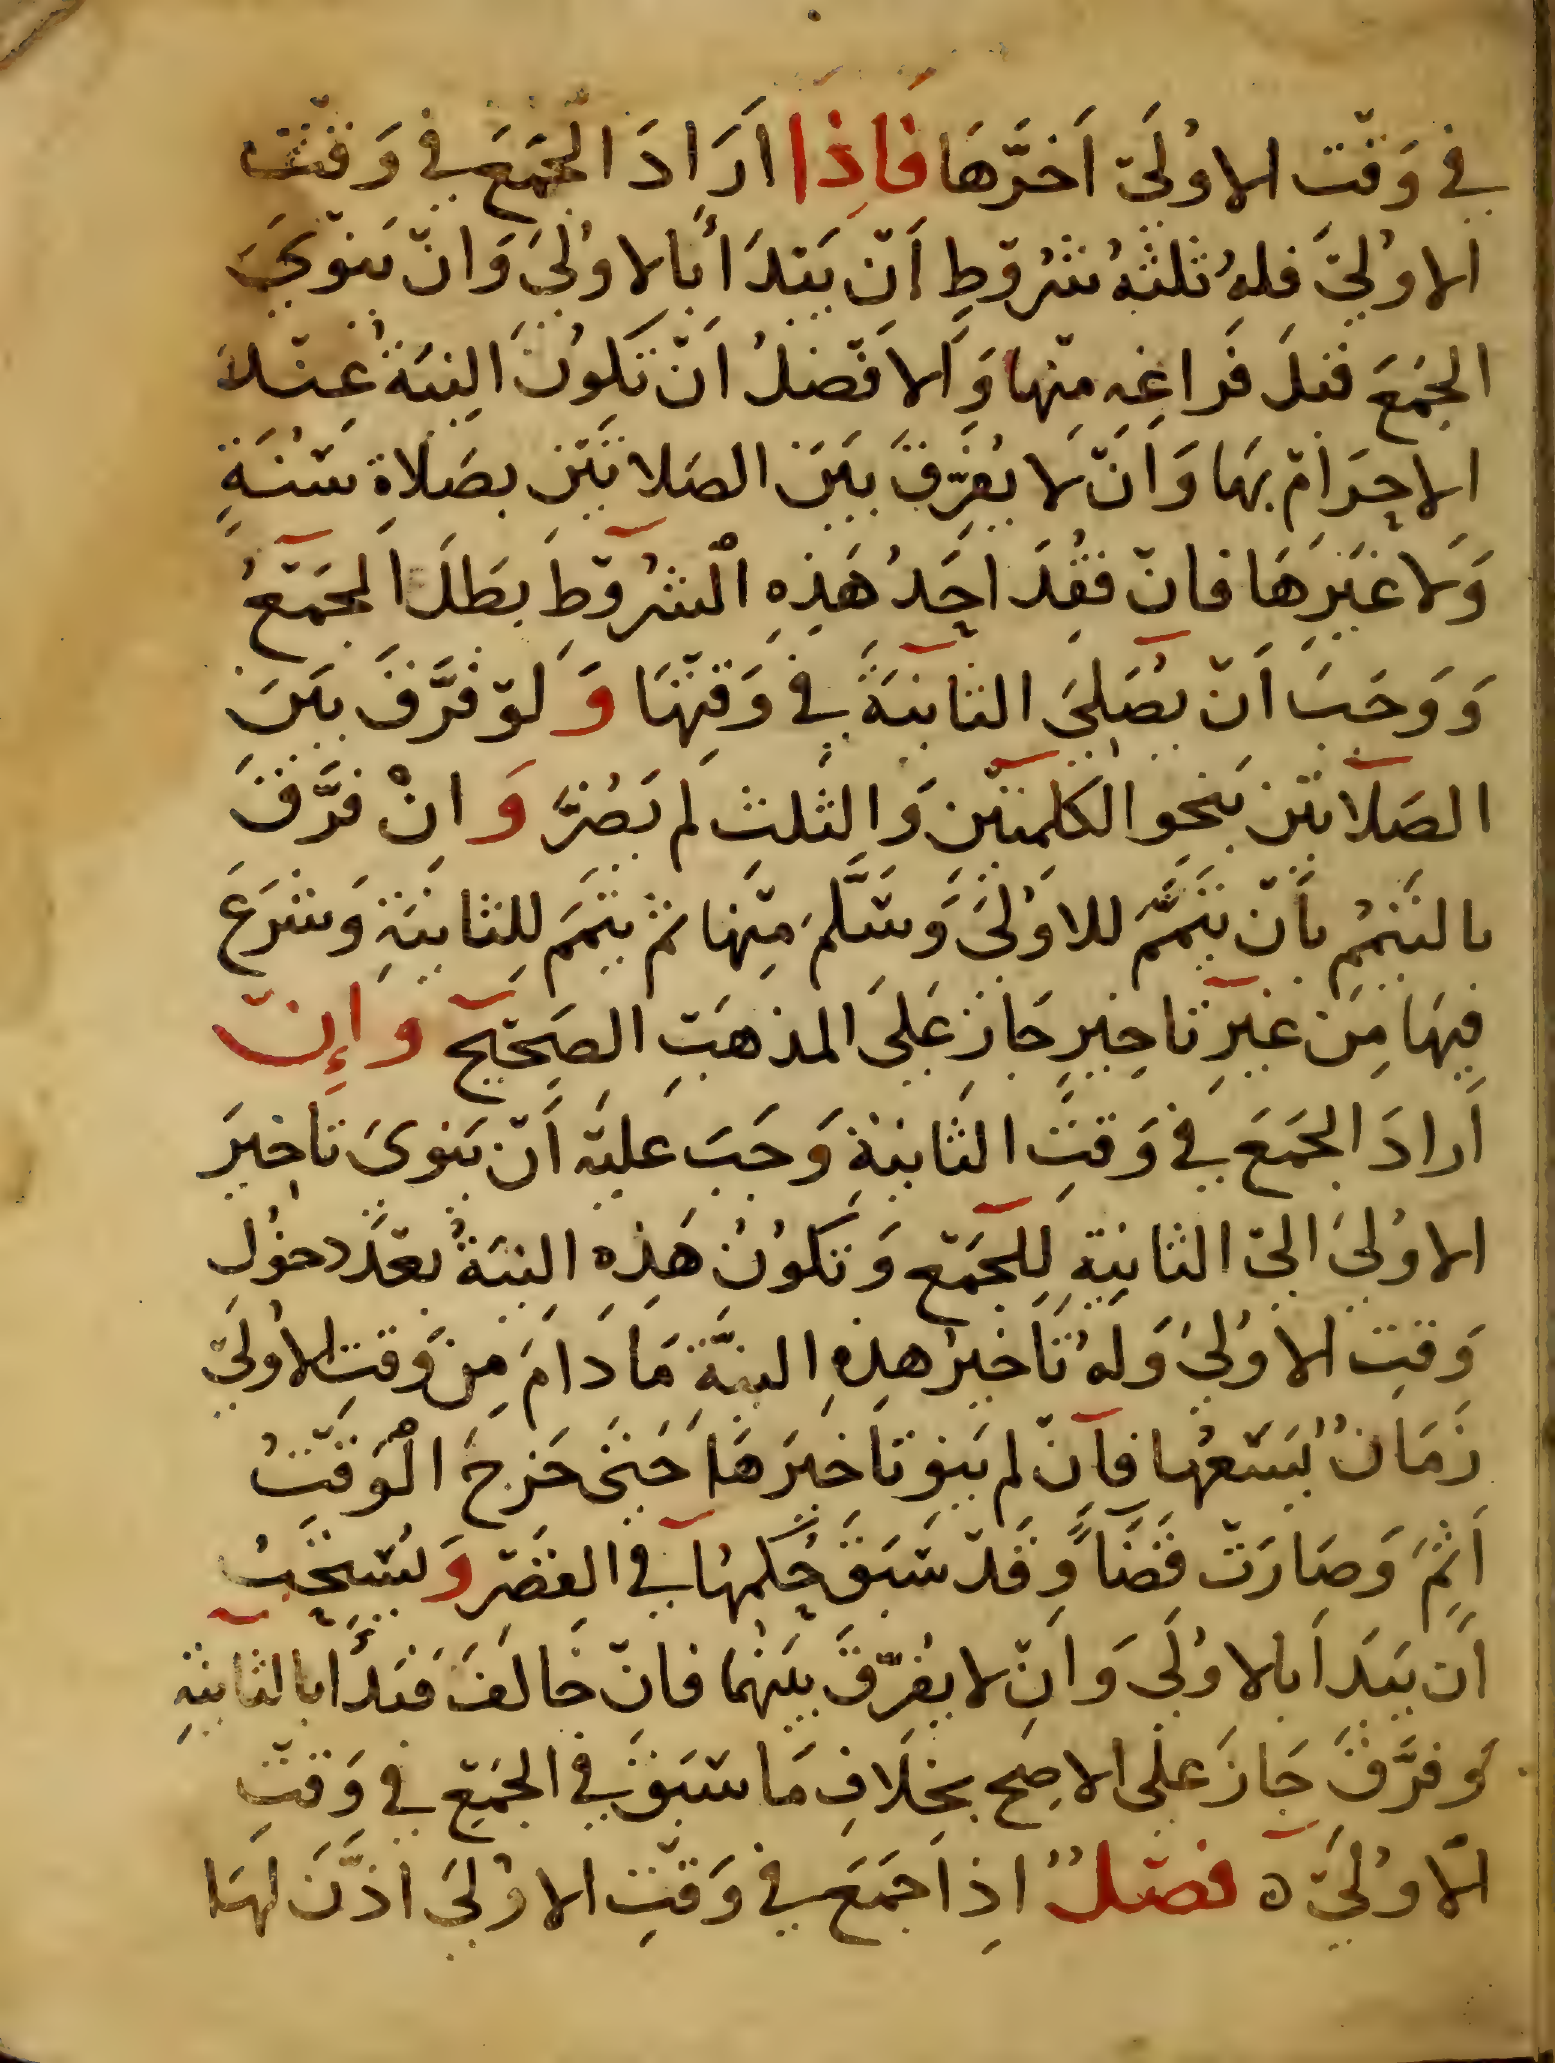 في وَقْت الاوُلَىْ اَخرَّهَا فَاِذَا اَرَادَ الجَمَعَ في وَقْت
الاوُلىَْ فلهُ ثلثهُ شُرُوْطٍ اَنْ يَبتدَاَ بالاوُلىَ وَانْ يَنوْيَ
الجَمَعَ قبلَ فَراغِه مِنْها وَالافْضلُ اَنْ تكوُنَ النِيَةُ عِنْدَ
الاحِرَامْ بهَا وَاَنْ لا يُفَرِّقَ بيَنَ الصَلاتَيَنْ بصَلاةِ سُنَةٍ
وَلا غيَرِهَا فانْ فقُدَ احَدُ هَذِهِ الْشُروْطِ بَطلَ الجَمْعُ
وَوَجَبَ اَنْ يُصَلِيَ الثانيَةَ في وَقتِهَا وَلوْ فَرَّقَ بيَنَ
الصَلاتيْن بنَحو الكلمتيْنِ وَالثلثِ لم يَضُرَّ وَانْ فرَّقَ
بالتَيَممُ بأنْ تيَممَّ للاوُلىَ وَسَلَّمَ مِنْها ثم تيمَمَ لِلثانِيَةِ وَشرَعَ
فِيهَا مِنَ غيَرِ تاخِيرٍ جَازَ عَلىَ المذهبَ الصَحِيْحِ وَإِنْ
اَرادَ الجَمَعَ في وَقتِ الثانيَةِ وَجَبَ عليْه اَنْ يَنوىَ تاخِيرَ
الاوُلىَ الىْ الثانِيَةِ لِلجَمْع وَتكوُنُ هَذِهِ النيَةُ بعْدَ دخوُلِ
وَقتِ الاوُلىَ وَلهُ تَاخيرُ هذِهِ النيَّةِ مَا دَامَ مِن وَقتِ الاوُلىَْ
زَمَانٌ يَسَعُهَا فاَنْ لم يَنوِ تاَخيرَهَا حَتىَ خَرجَ الْوَقْتُ
اَثِمَ وَصَارَتْ قضَاً وَقَدْ سَبَقَ حُكمهَا في القَصْرِ وَيُسْتحَبُ
اَن يَبَدَاَ بالاوُلَى وَانَ لا يفُرّقَ بيَنهُما فانْ خَالَفَ فبَدأَ بالثانيَةِ
اَو فرَّقَ جَازَ علىَ الاصِح بخِلَافِ مَا سَبَقَ في الجَمْعِ في وَقتِ
الاوُلىَْ ه فصْلٌ اِذا جَمَعَ في وَقْتِ الاوُلىَ اَذَّنَ لهَا